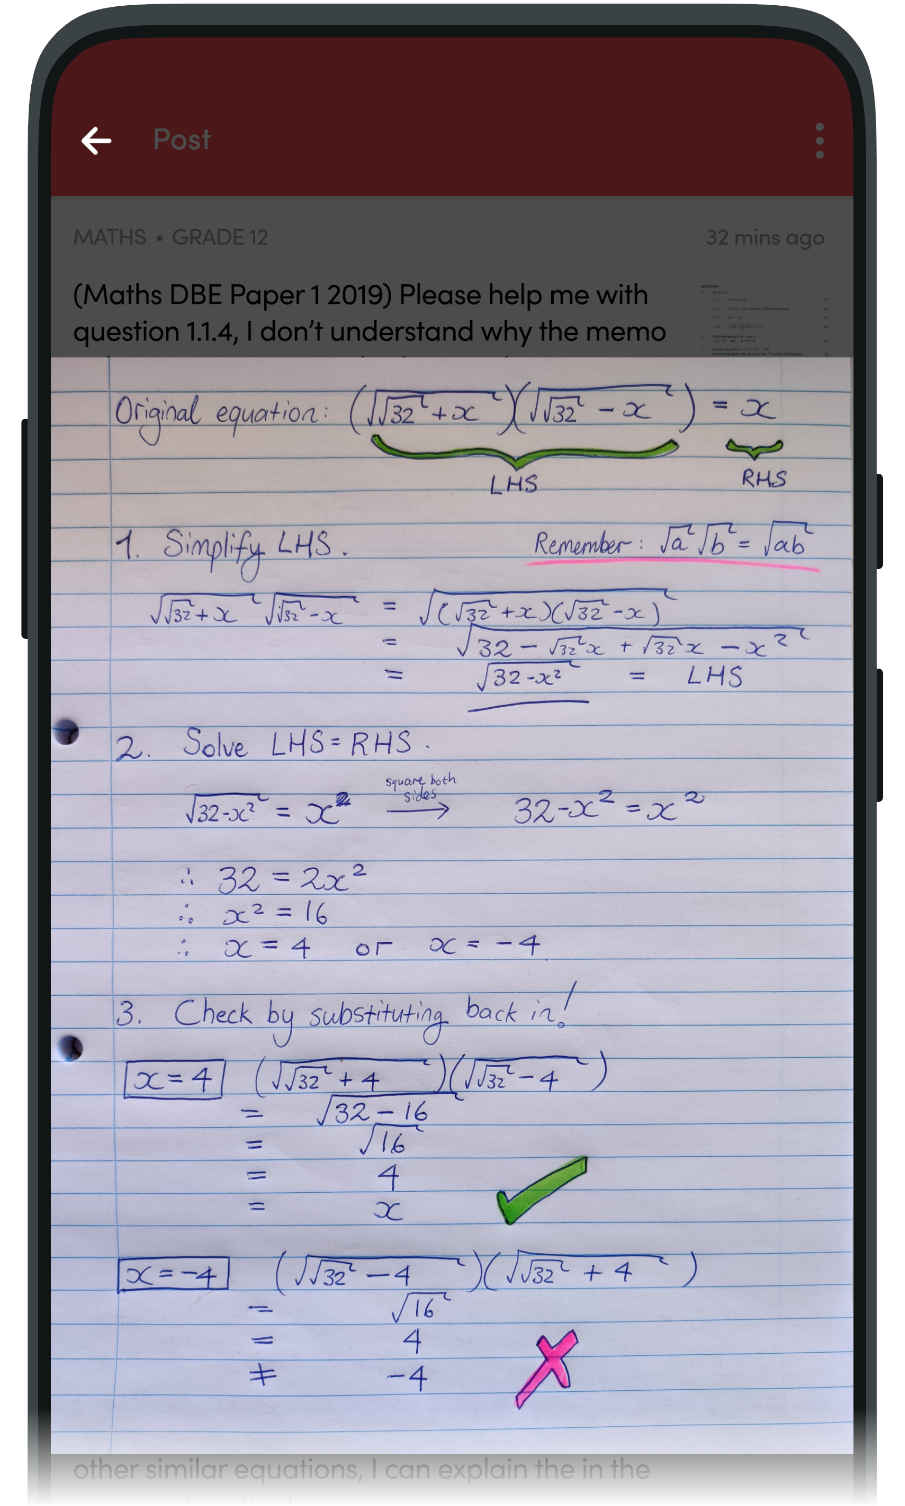 Post
MATHS • GRADE 12 32 mins ago
(Maths DBE Paper 1 2019) Please help me with
question 1.1.4, I don't understand why the memo
Original equation: (√(√32 + x))(√(√32 − x)) = x
LHS RHS
1. Simplify LHS. Remember: √a √b = √ab
√(√32 + x) √(√32 − x) = √((√32 + x)(√32 − x))
= √(32 − √32 x + √32 x − x²)
= √(32 − x²) = LHS
2. Solve LHS = RHS.
square both
sides
√(32 − x²) = x → 32 − x² = x²
∴ 32 = 2x²
∴ x² = 16
∴ x = 4 or x = −4
3. Check by substituting back in!
x = 4 (√(√32 + 4))(√(√32 − 4))
= √(32 − 16)
= √16
= 4
= x
x = −4 (√(√32 − 4))(√(√32 + 4))
= √16
= 4
≠ −4
other similar equations, I can explain the in the